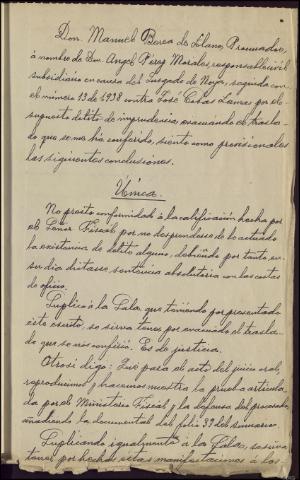 Don Manuel Berea de Llano, Procurador,
á nombre de Don Angel Perez Morales, responsable civil
subsidiario en causa del Juzgado de Noya, seguida con
el número 13 de 1938 contra José Casas Lames por el
supuesto delito de imprudencia, evacuando el trasla-
do que se me ha conferido, siento como provisionales
las siguientes conclusiones.
Unica.
No presto conformidad á la calificación hecha por
el Señor Fiscal por no desprenderse de lo actuado
la existencia de delito alguno, debiendo por tanto en
su dia dictarse sentencia absolutoria con las costas
de oficio.
Suplico á la Sala, que teniendo por presentado
este escrito, se sirva tener por evacuado el trasla-
do que se nos confirió. Es de justicia.
Otrosi digo: Que para el acto del juicio oral,
reproducimos y hacemos nuestra la prueba articula-
da por el Ministerio Fiscal y la defensa del procesado,
añadiendo la documental del folio 37 del sumario.
Suplicando igualmente á la Sala, se sirva
tener por hechas estas manifestaciones á los